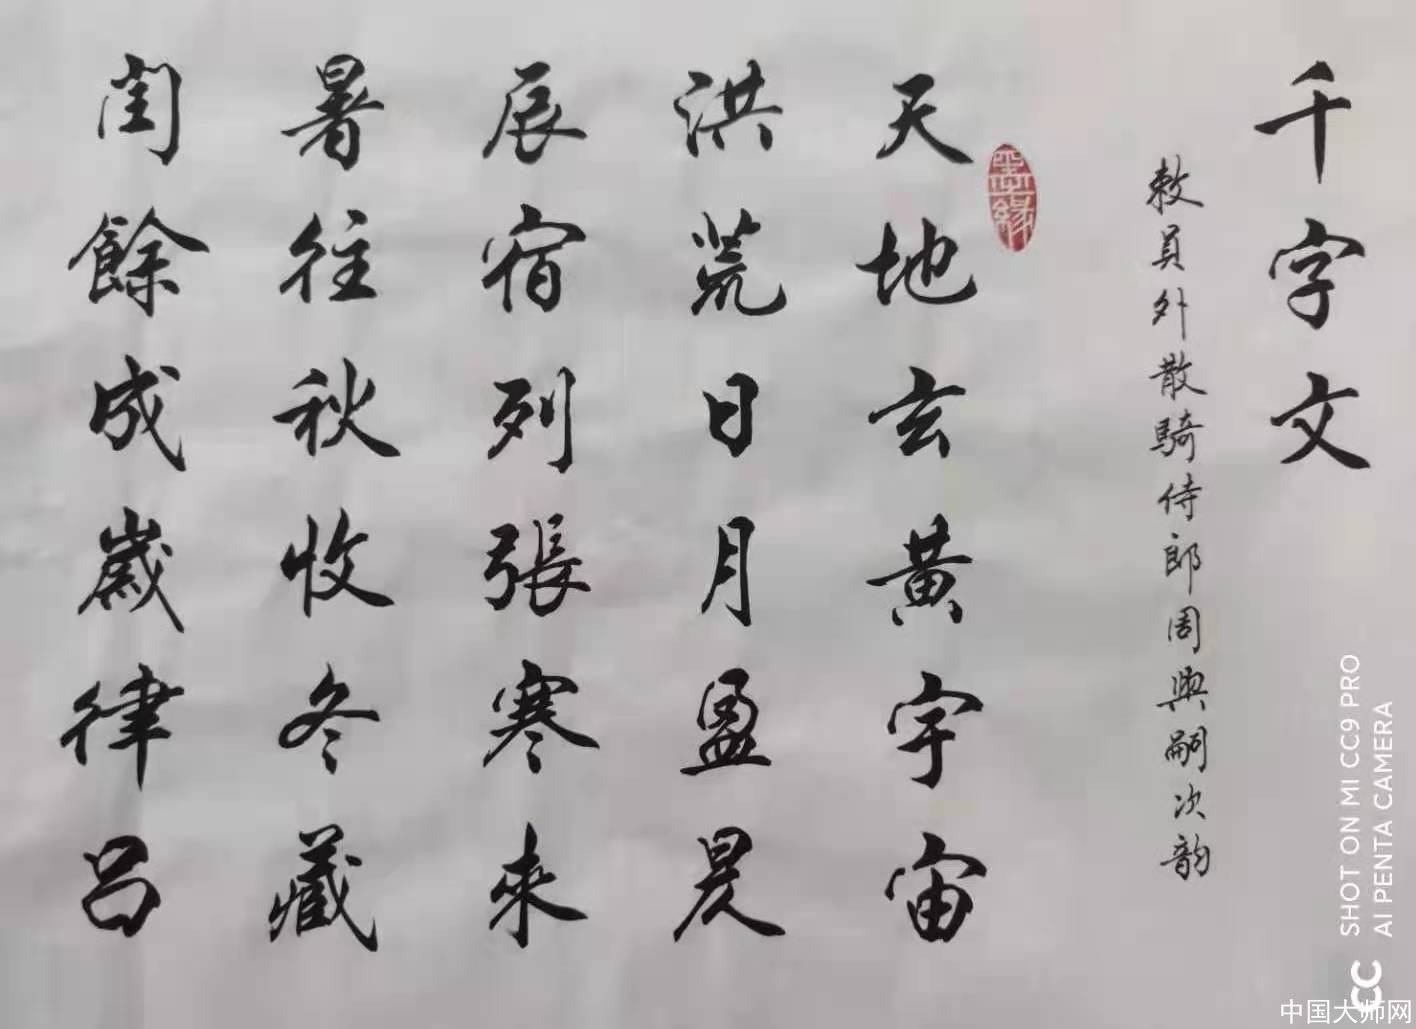 千字文
敕員外散騎侍郎周興嗣次韵
墨緣
天地玄黃宇宙
洪荒日月盈昃
辰宿列張寒來
暑往秋收冬藏
閏餘成歲律呂
SHOT ON MI CC9 PRO
AI PENTA CAMERA
中国大师网